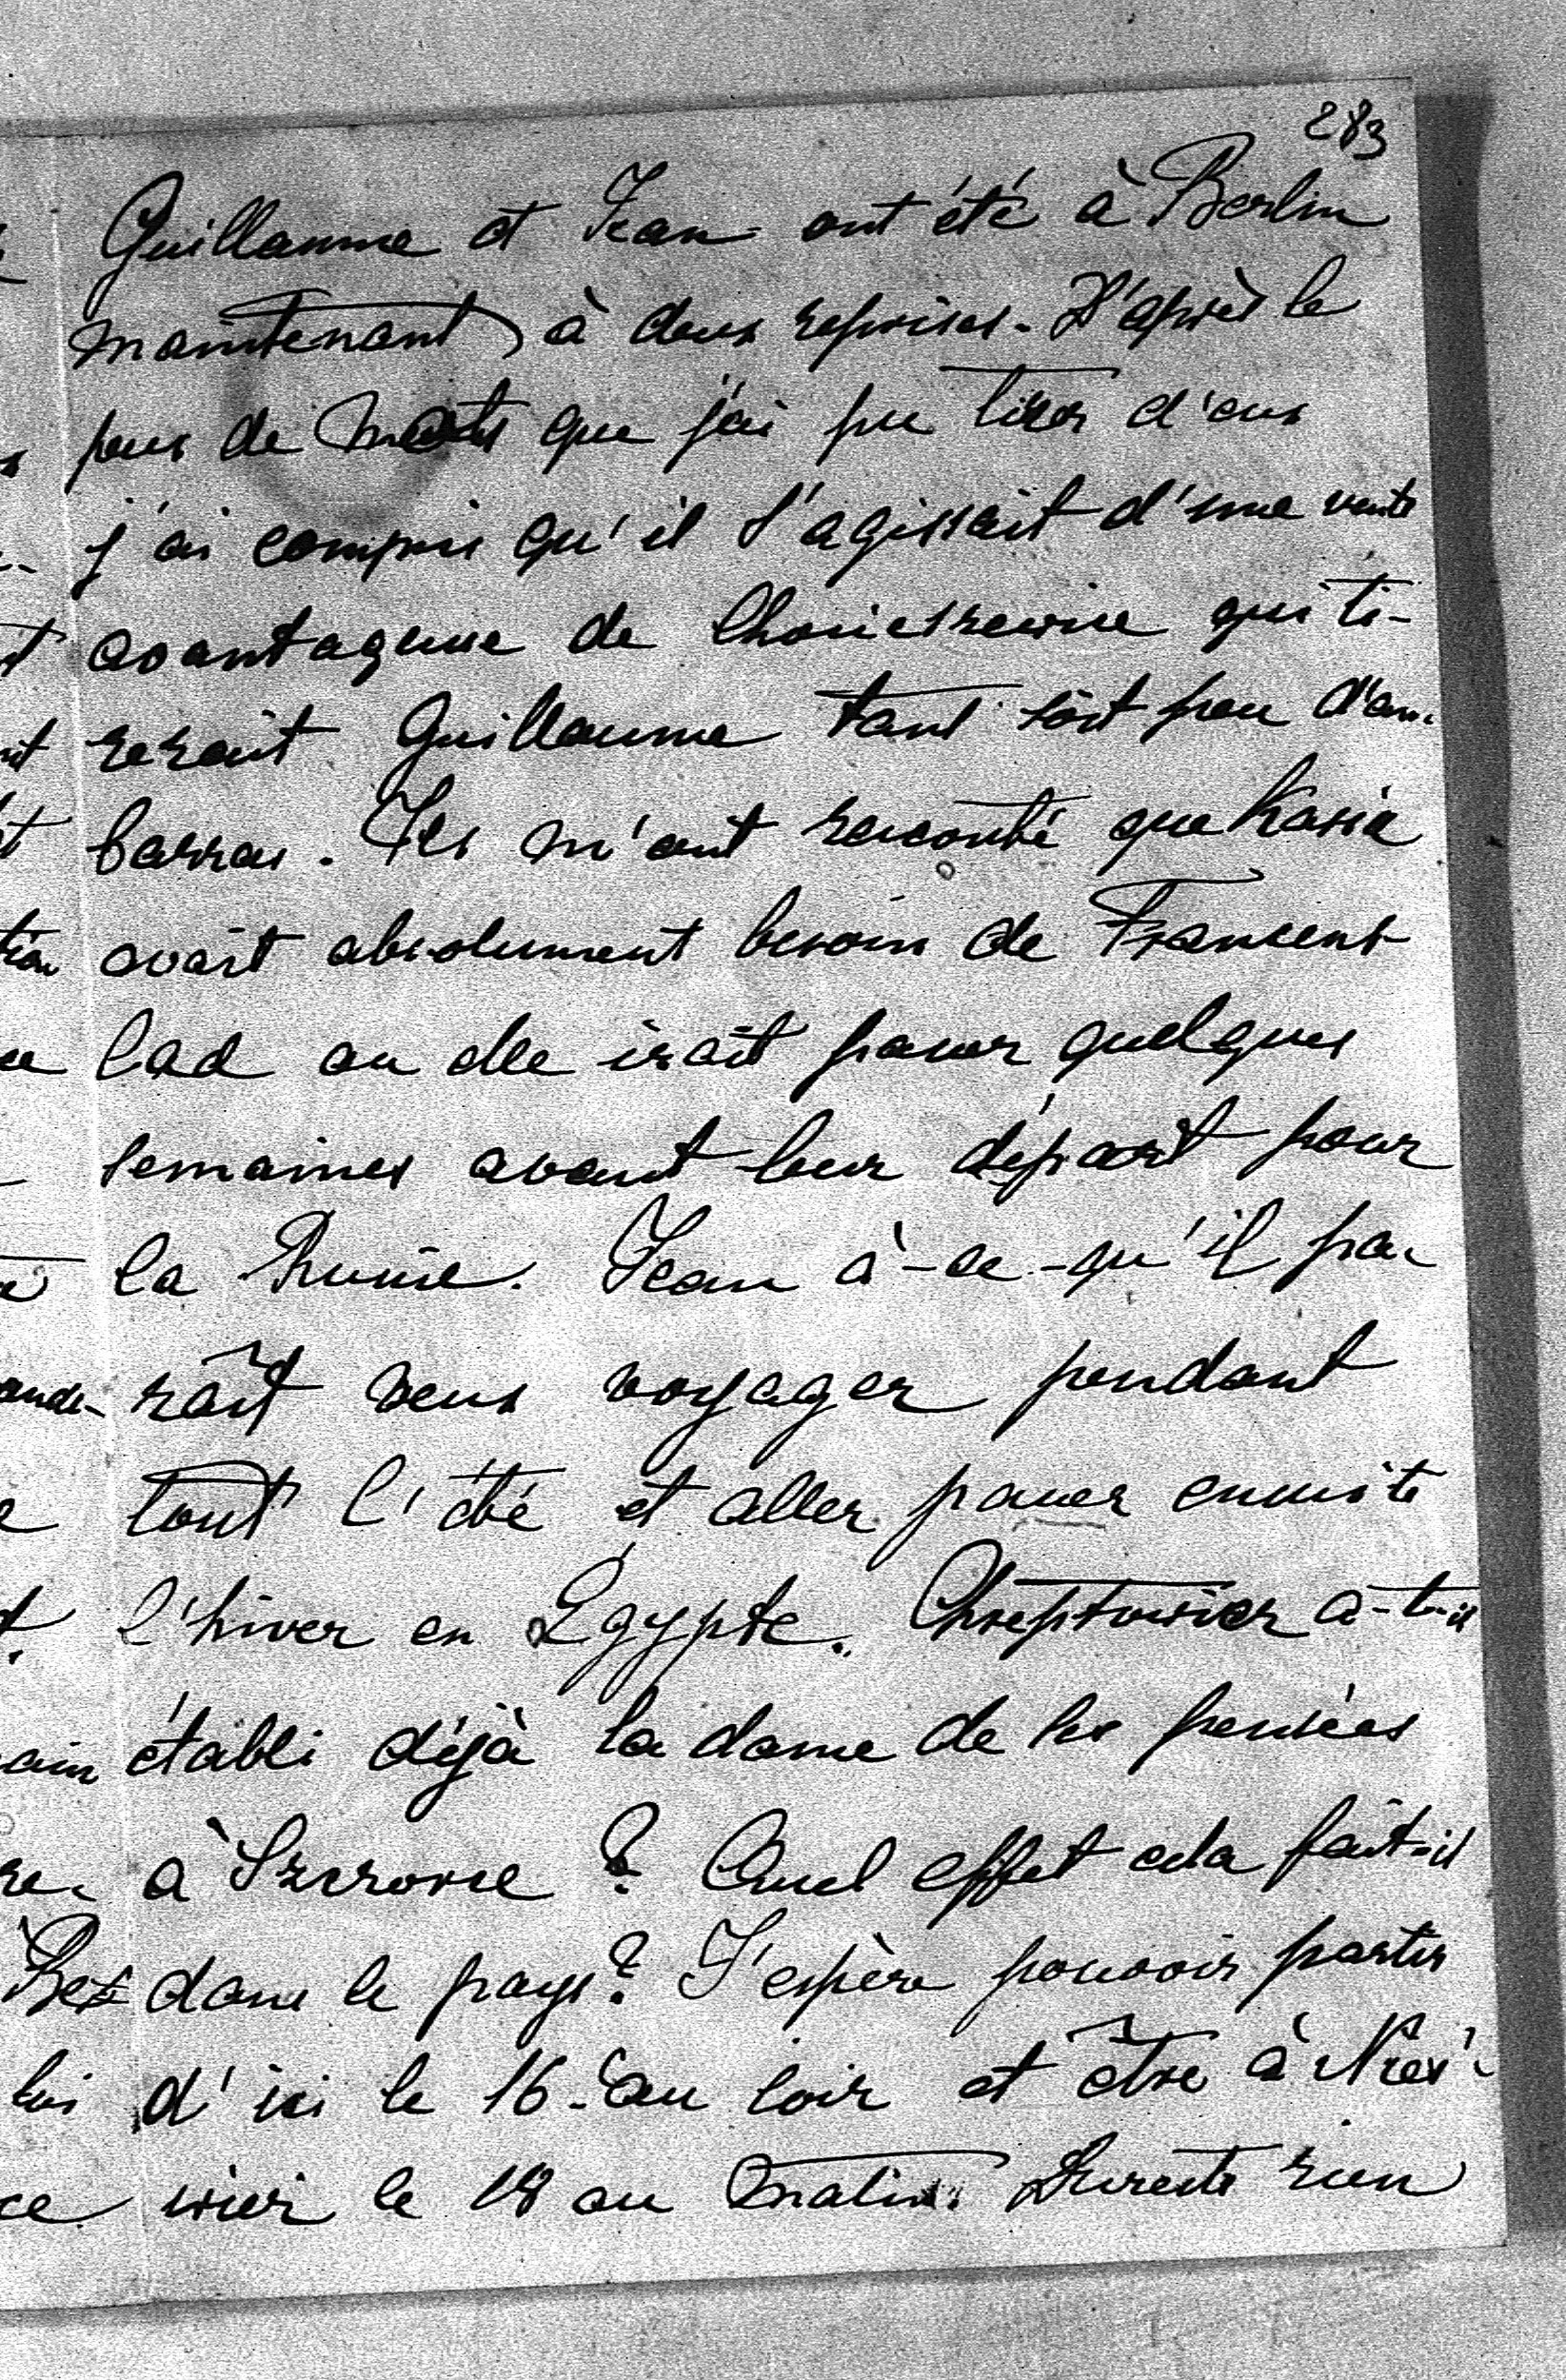 283
Guillaume et Jean ont été à Berlin
maintenant à deux reprises. D'après le
peux de mots que j'ai pu tirer d'eux
j'ai compris qu'il s'agissait d'une vente
avantageuse de qui ti-
rerait Guillaume tant soit peu d'em-
barras. Ils m'ont raconté que Kasia
avait absolument besoin de Franzens-
bad ou elle irait passer quelques
semaines avant leur départ pour
la Russie. Jean à-ce-qu'il pa-
raît veux voyager pendant
tout l'été et aller passer ensuite
l'hiver en Égypte. Chreptowicz a-t-il
établi déjà la dame de ses pensées
à ? Quel effet cela fait-il
dans le pays? J'espère pouvoir partir
d'ici le 16 au soir et être à Nies-
wiez le 18 au matin. Du reste rien